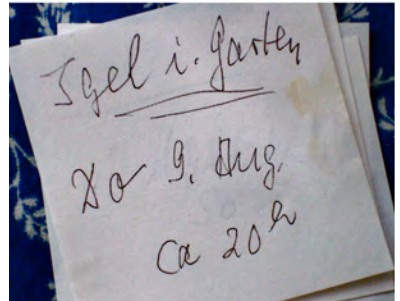 Igel i. Garten
Do 9. Aug.
Ca 20h